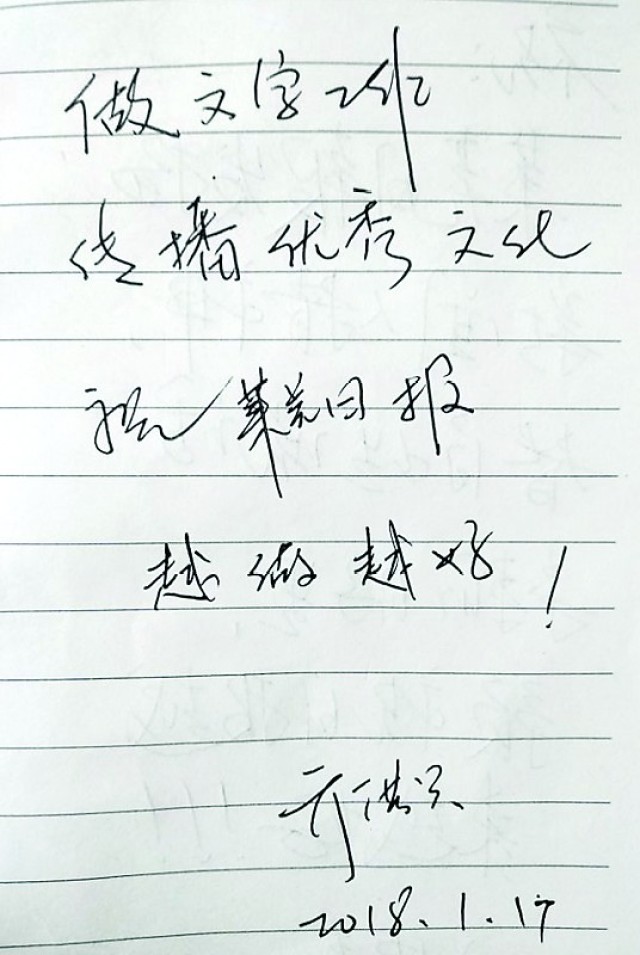 做文字工作
传播优秀文化
祝莱芜日报
越做越好！
2018.1.17